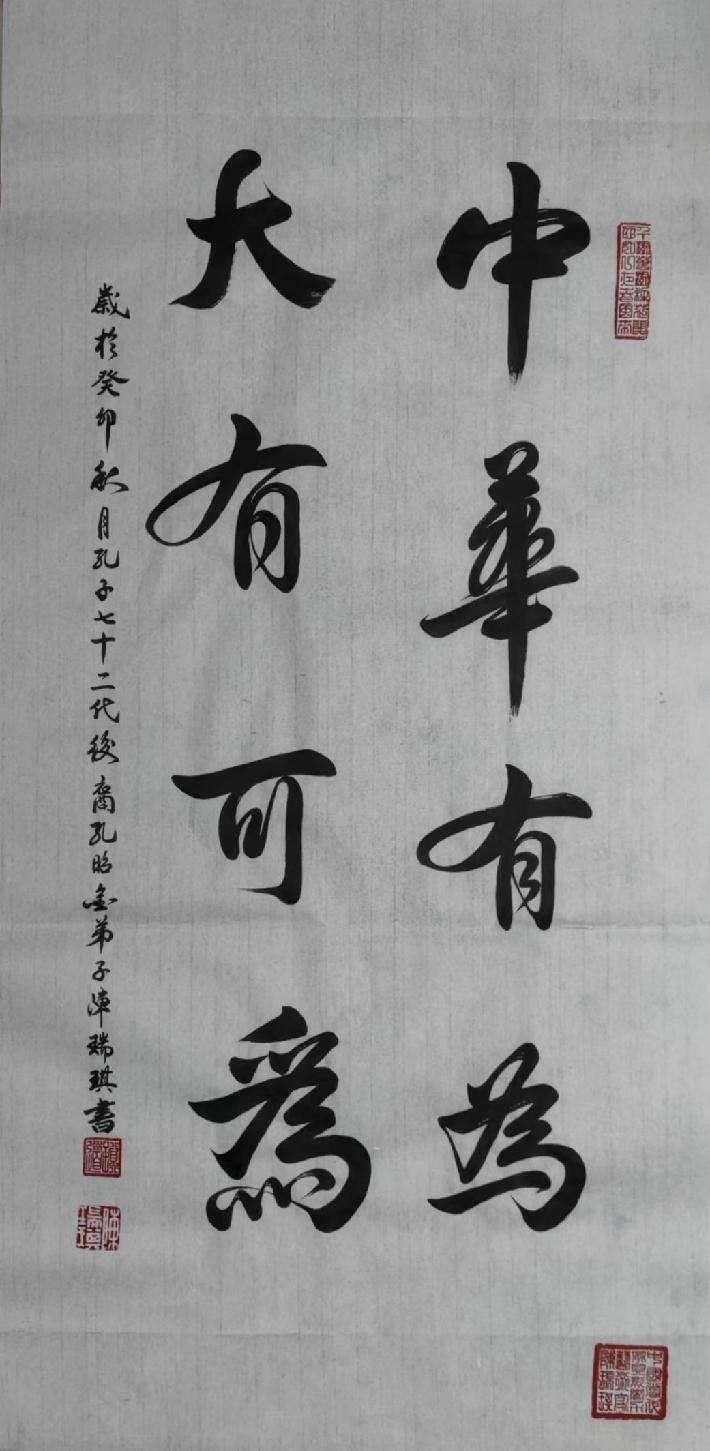 中華有为
大有可為
歲於癸卯秋月孔子七十二代後裔孔昭金弟子陳瑞琪書